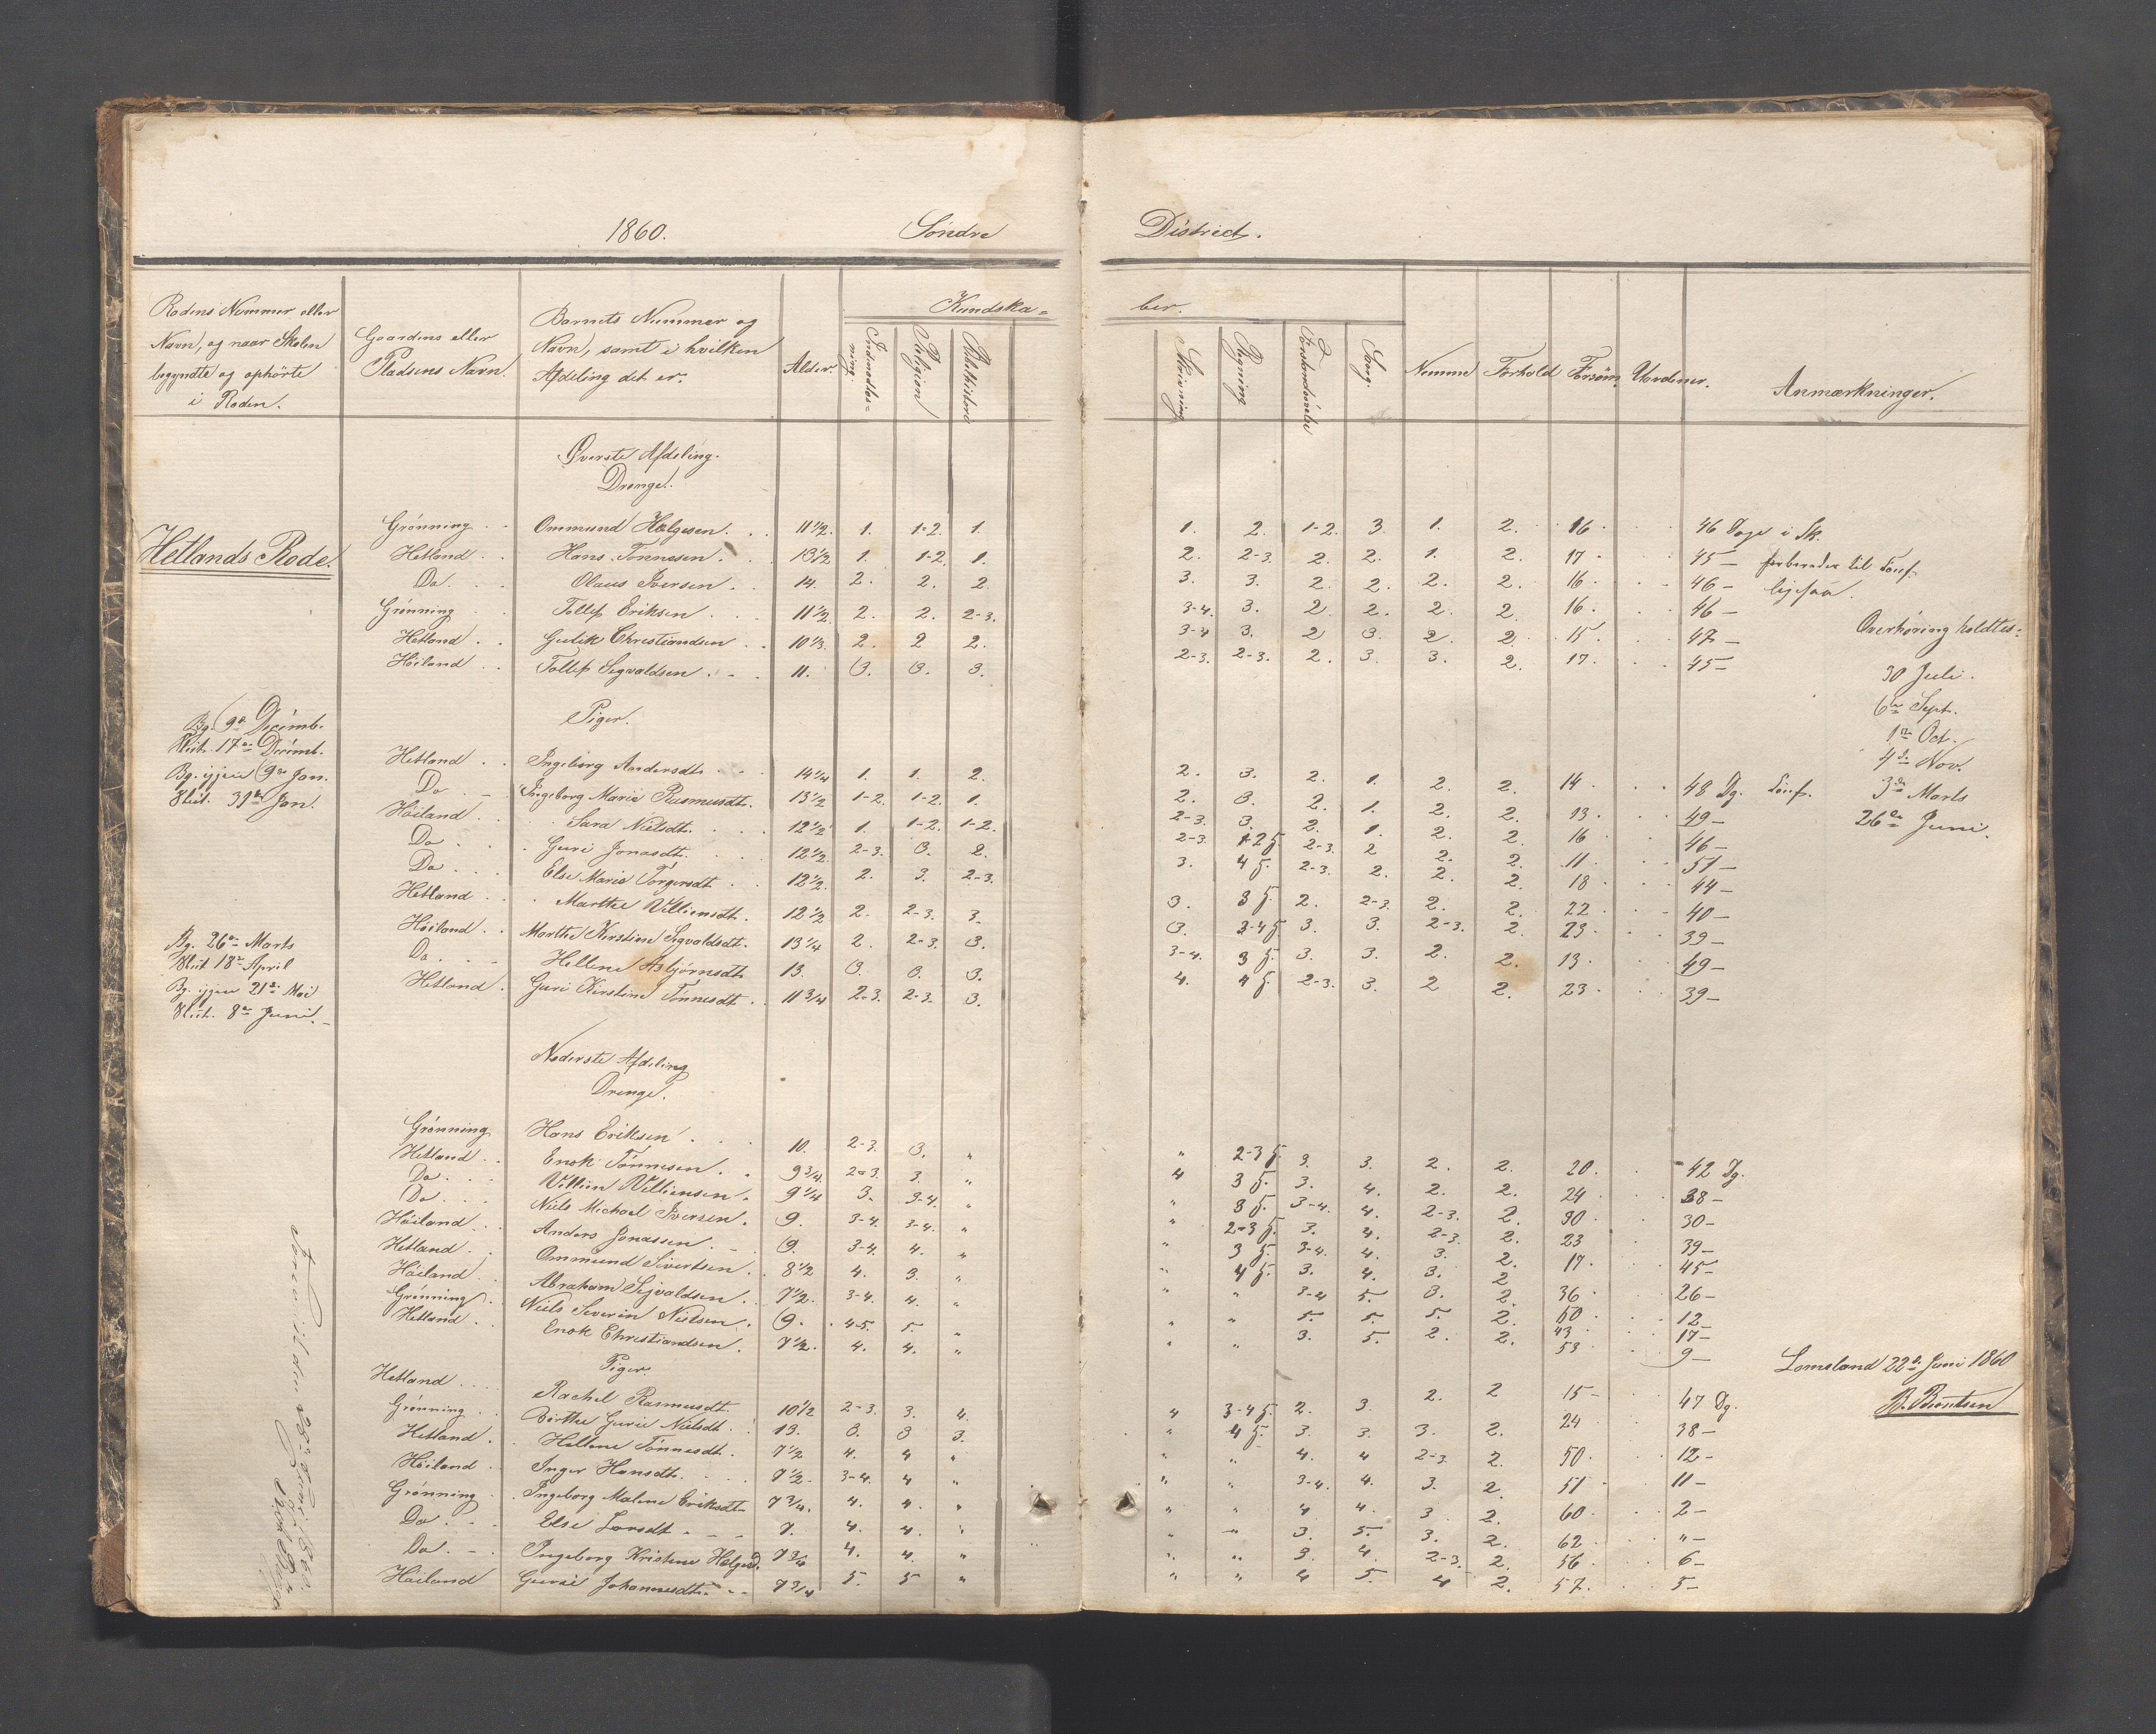 1860. Søndre District.
Rodens Nummer eller
Navn, og naar Skolen
begyndte og ophørte
i Roden.
Gaardens eller
Pladsens Navn.
Barnets Nummer og
Navn, samt i hvilken
Afdeling det er.
Alder
Kundska=
ber.
Indenadlæs=
ning.
Religion
Bibelhistorie
Skrivning
Regning
Forstandsøvelse
Sang.
Nemme
Forhold
Forsøm.
Vurdener.
Anmærkninger.
Øverste Afdeling.
Drenge.
Hetlands Rode.
Grønning . . Ommund Helgesen. . . 11 1/2. 1. 1-2. 1. 1. 2. 1-2. 3. 1. 2. 16. 46 Dage i Sk.
Hetland . . Hans Tønnesen. . 13 1/2 1. 1-2. 1. 2. 2-3. 2. 2. 1. 2. 17. 45 – forbereder til Conf.
Do. . . Olaus Iversen . . 14. 2. 2. 2. 3. 3. 2. 2. 2. 2. 16. 46 – ligesaa.
Grønning . . Tollef Eriksen . . . 11 1/2 2. 2. 2-3. 3-4. 3. 2. 2. 2. 2. 16. 46 –
Hetland . . Gulik Christiandsen . . 10 1/3. 2. 2 2. 3-4 3. 2 3. 2. 2. 15. 47 –
Høiland . . Tollef Sigvaldsen . . . 11. 3. 3. 3. 2-3. 2-3. 2. 3. 3. 2. 17. 45 –
Overhøring holdtes:
30 Juli.
6te Sept.
1ste Oct.
4de Nov.
3die Marts
26de Juni.
Piger.
Bg. 9de Decemb.
Slut. 17de Decemb.
Bg. igjen 9de Jan.
Slut. 31te Jan.
Hetland . . Ingeborg Andersdt. . . 14 1/4 1. 1. 2. 2. 3. 2. 1. 2. 2. 14. 48 Dg. Conf.
Do . – Ingeborg Marie Rasmusdt. 13 1/2 1-2. 1-2. 1. 2. 3. 2. 1. 2. 2. 13. 49 –
Høiland . . Sara Nielsdt. . . . 12 1/2 1. 1-2. 1-2. 2-3. 3. 2. 1. 2. 2. 16 46 –
Do . . . Guri Jonasdt. . . . 12 1/2. 2-3. 3. 2. 2-3. 1-2 f. 2-3. 2 2. 2. 11. 51 –
Do . . . Else Marie Torgersdt . . 12 1/2. 2. 3. 2-3. 3. 4 f. 2-3. 2. 2. 2. 18. 44 –
Hetland . . Marthe Villiensdt. . 12 1/2 2. 2-3. 3. 3. 3 f. 2. 2-3. 2. 2. 22. 40 –
Høiland . . Marthe Kirstine Sigvaldsdt. 13 1/4 2. 2-3. 3. 3. 3-4 f. 3. 3. 2-3. 2. 23. 39 –
Do . . – Hellene Asbjørnsdt. 13. 3. 3. 3. 3-4. 3 f. 3. 3. 2. 2. 13. 49 –
Hetland . Guri Kirstine Tønnesdt . . 11 3/4 2-3. 2-3. 3. 4. 4 f. 2-3. 3. 2 2. 23. 39 –
Bg. 26de Marts
Slut 18de April
Bg. igjen 21de Mai
Slut. 8de Juni. –
Nederste Afdeling
Drenge.
Grønning Hans Eriksen . . . 10. 2-3. 3. " " 2-3 f. 3. 3. 2. 2. 20. 42 Dg.
Hetland . . Enok Tønnesen . . 9 3/4. 2-3. 3. " " 3 f. 3. 4. 2. 2. 24 38 –
Do . . . Villien Villiensen . 9 1/4 3. 3-4. " " 3 f. 3-4. 4. 2-3. 2. 30. 30 –
Do . . . Niels Michael Iversen . 9. 3-4. 3-4. " " 2-3 f. 3. 4. 2-3. 2. 23 39 –
Høiland . . Anders Jonassen . – 9. 3-4. 4. " " 3 f. 3-4. 4. 3. 2. 17. 45 –
Hetland . . Ommund Sivertsen . 8 1/2 4. 3. " " 4 f. 3. 4. 3. 2 36 26 –
Høiland . Abraham Sigvaldsen . . 7 1/2. 3-4. 4. " " " 3-4 5. 3. 2. 50. 12
Grønning . Niels Severin Nielsen . 9. 4-5. 5. " " " 5. 5. 5. 2. 43 17 –
Hetland . . Enok Christiandsen . 7 1/2. 4. 4. " " " 3. 5. 2. 2. 53 9 –
Lomeland 22de Juni 1860
B. Berntsen
Piger.
Hetland . . . Rachel Rasmusdt 10 1/2 2-3. 3. 4. " 3-4 f. 2. 3. 2. 2 15 – 47 Dg.
Grønning . . Birthe Gurie Nielsdt . 13. 3. 3 3. " 4 f. 3. 3. 3. 2. 24 38 –
Hetland . Hellene Tønnesdt . 7 1/2 4. 4 " " " 4. 4 2-3. 2. 50. 12 –
Høiland . Inger Hansdt. . . 7 1/2. 3-4. 4 " " " 3-4. 4. 3. 2. 51 11 –
Grønning . Ingeborg Malene Eriksdt. 7 3/4. 4. 4. " " " 4 4. 3 2. 60. 2 –
Do . . Else Larsdt . – – 7. 4. 4. " " " 3. 5. 3. 2. 62. " –
Do . – Ingeborg Kristine Helgesd. 7 3/4 4. 4. " " " 3. 4. 2-3. 2. 56. 6 –
Høiland Gurie Johannesdt. – – 7 3/4 5. 5 " " " 4 5. 4 2. 57. 5 –